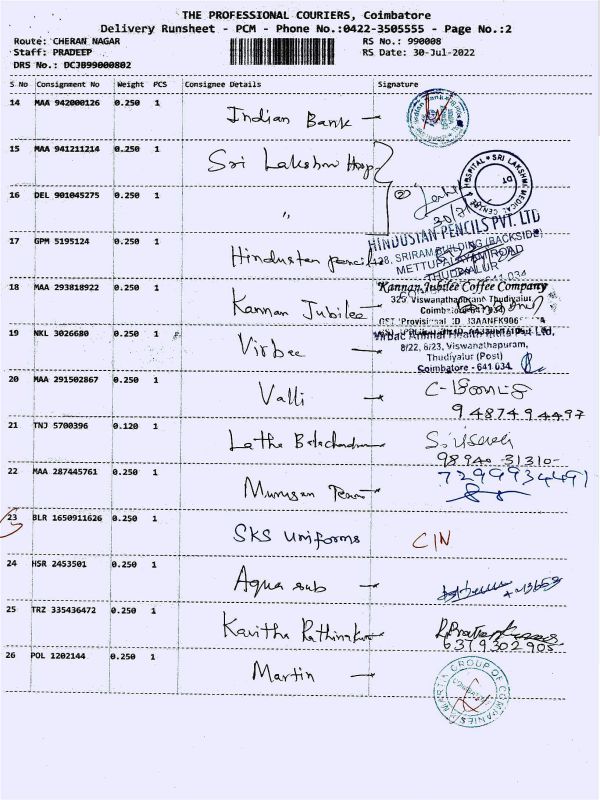 THE PROFESSIONAL COURIERS, Coimbatore
Delivery Runsheet - PCM - Phone No.:0422-3505555 - Page No.:2
Route: CHERAN NAGAR RS No.: 990008
Staff: PRADEEP RS Date: 30-Jul-2022
DRS No.: DCJB99000802
S No Consignment No Weight PCS Consignee Details Signature
14 MAA 942000126 0.250 1 Indian Bank
15 MAA 941211214 0.250 1 Sri Lakshmi Hosp
HOSPITAL * SRI LAKSHMI MEDICAL CENTRE &
16 DEL 901045275 0.250 1 " 2
HINDUSTAN PENCILS PVT. LTD
17 GPM 5195124 0.250 1 Hindustan pencils
128, SRIRAM BUILDING (BACKSIDE)
METTUPALAYAM ROAD
THUDIYALUR
18 MAA 293818922 0.250 1 Kannan Jubilee
Kannan Jubilee Coffee Company
323, Viswanathapuram Thudiyalur
Coimbatore-641 034
19 NKL 3026680 0.250 1 Virbac
Virbac Animal Health India Pvt Ltd.
8/22, 6/23, Viswanathapuram,
Thudiyalur (Post)
Coimbatore - 641 034
20 MAA 291502867 0.250 1 Valli
9487494497
21 TNJ 5700396 0.120 1 Latha Balachandran
98940-31310
22 MAA 287445761 0.250 1 Murugan Team 7299934491
23 BLR 1650911626 0.250 1 SKS Uniforms CIN
24 HSR 2453501 0.250 1 Aqua sub
25 TRZ 335436472 0.250 1 Kavitha Rathinakumar
6379302905
26 POL 1202144 0.250 1 Martin
MARTIN GROUP OF COMPANIES